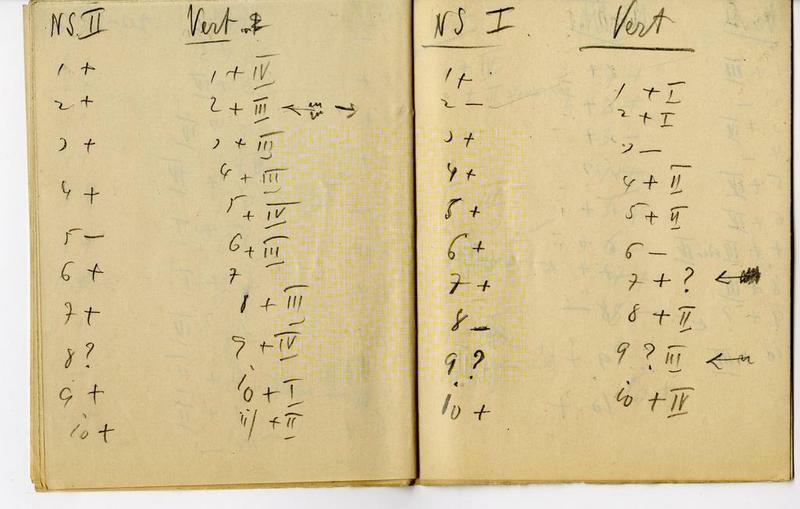 NS. II
1 +
2 +
3 +
4 +
5 –
6 +
7 +
8 ?
9 +
10 +
Vert.
1 + IV
2 + III ← →
3 + III
4 + III
5 + IV
6 + III
7
8 + III
9 + IV
10 + I
11 + II
NS I
1 +
2 –
3 +
4 +
5 +
6 +
7 +
8 –
9 ?
10 +
Vert
1 + I
2 + I
3 –
4 + II
5 + II
6 –
7 + ? ←
8 + II
9 ? III ←
10 + IV